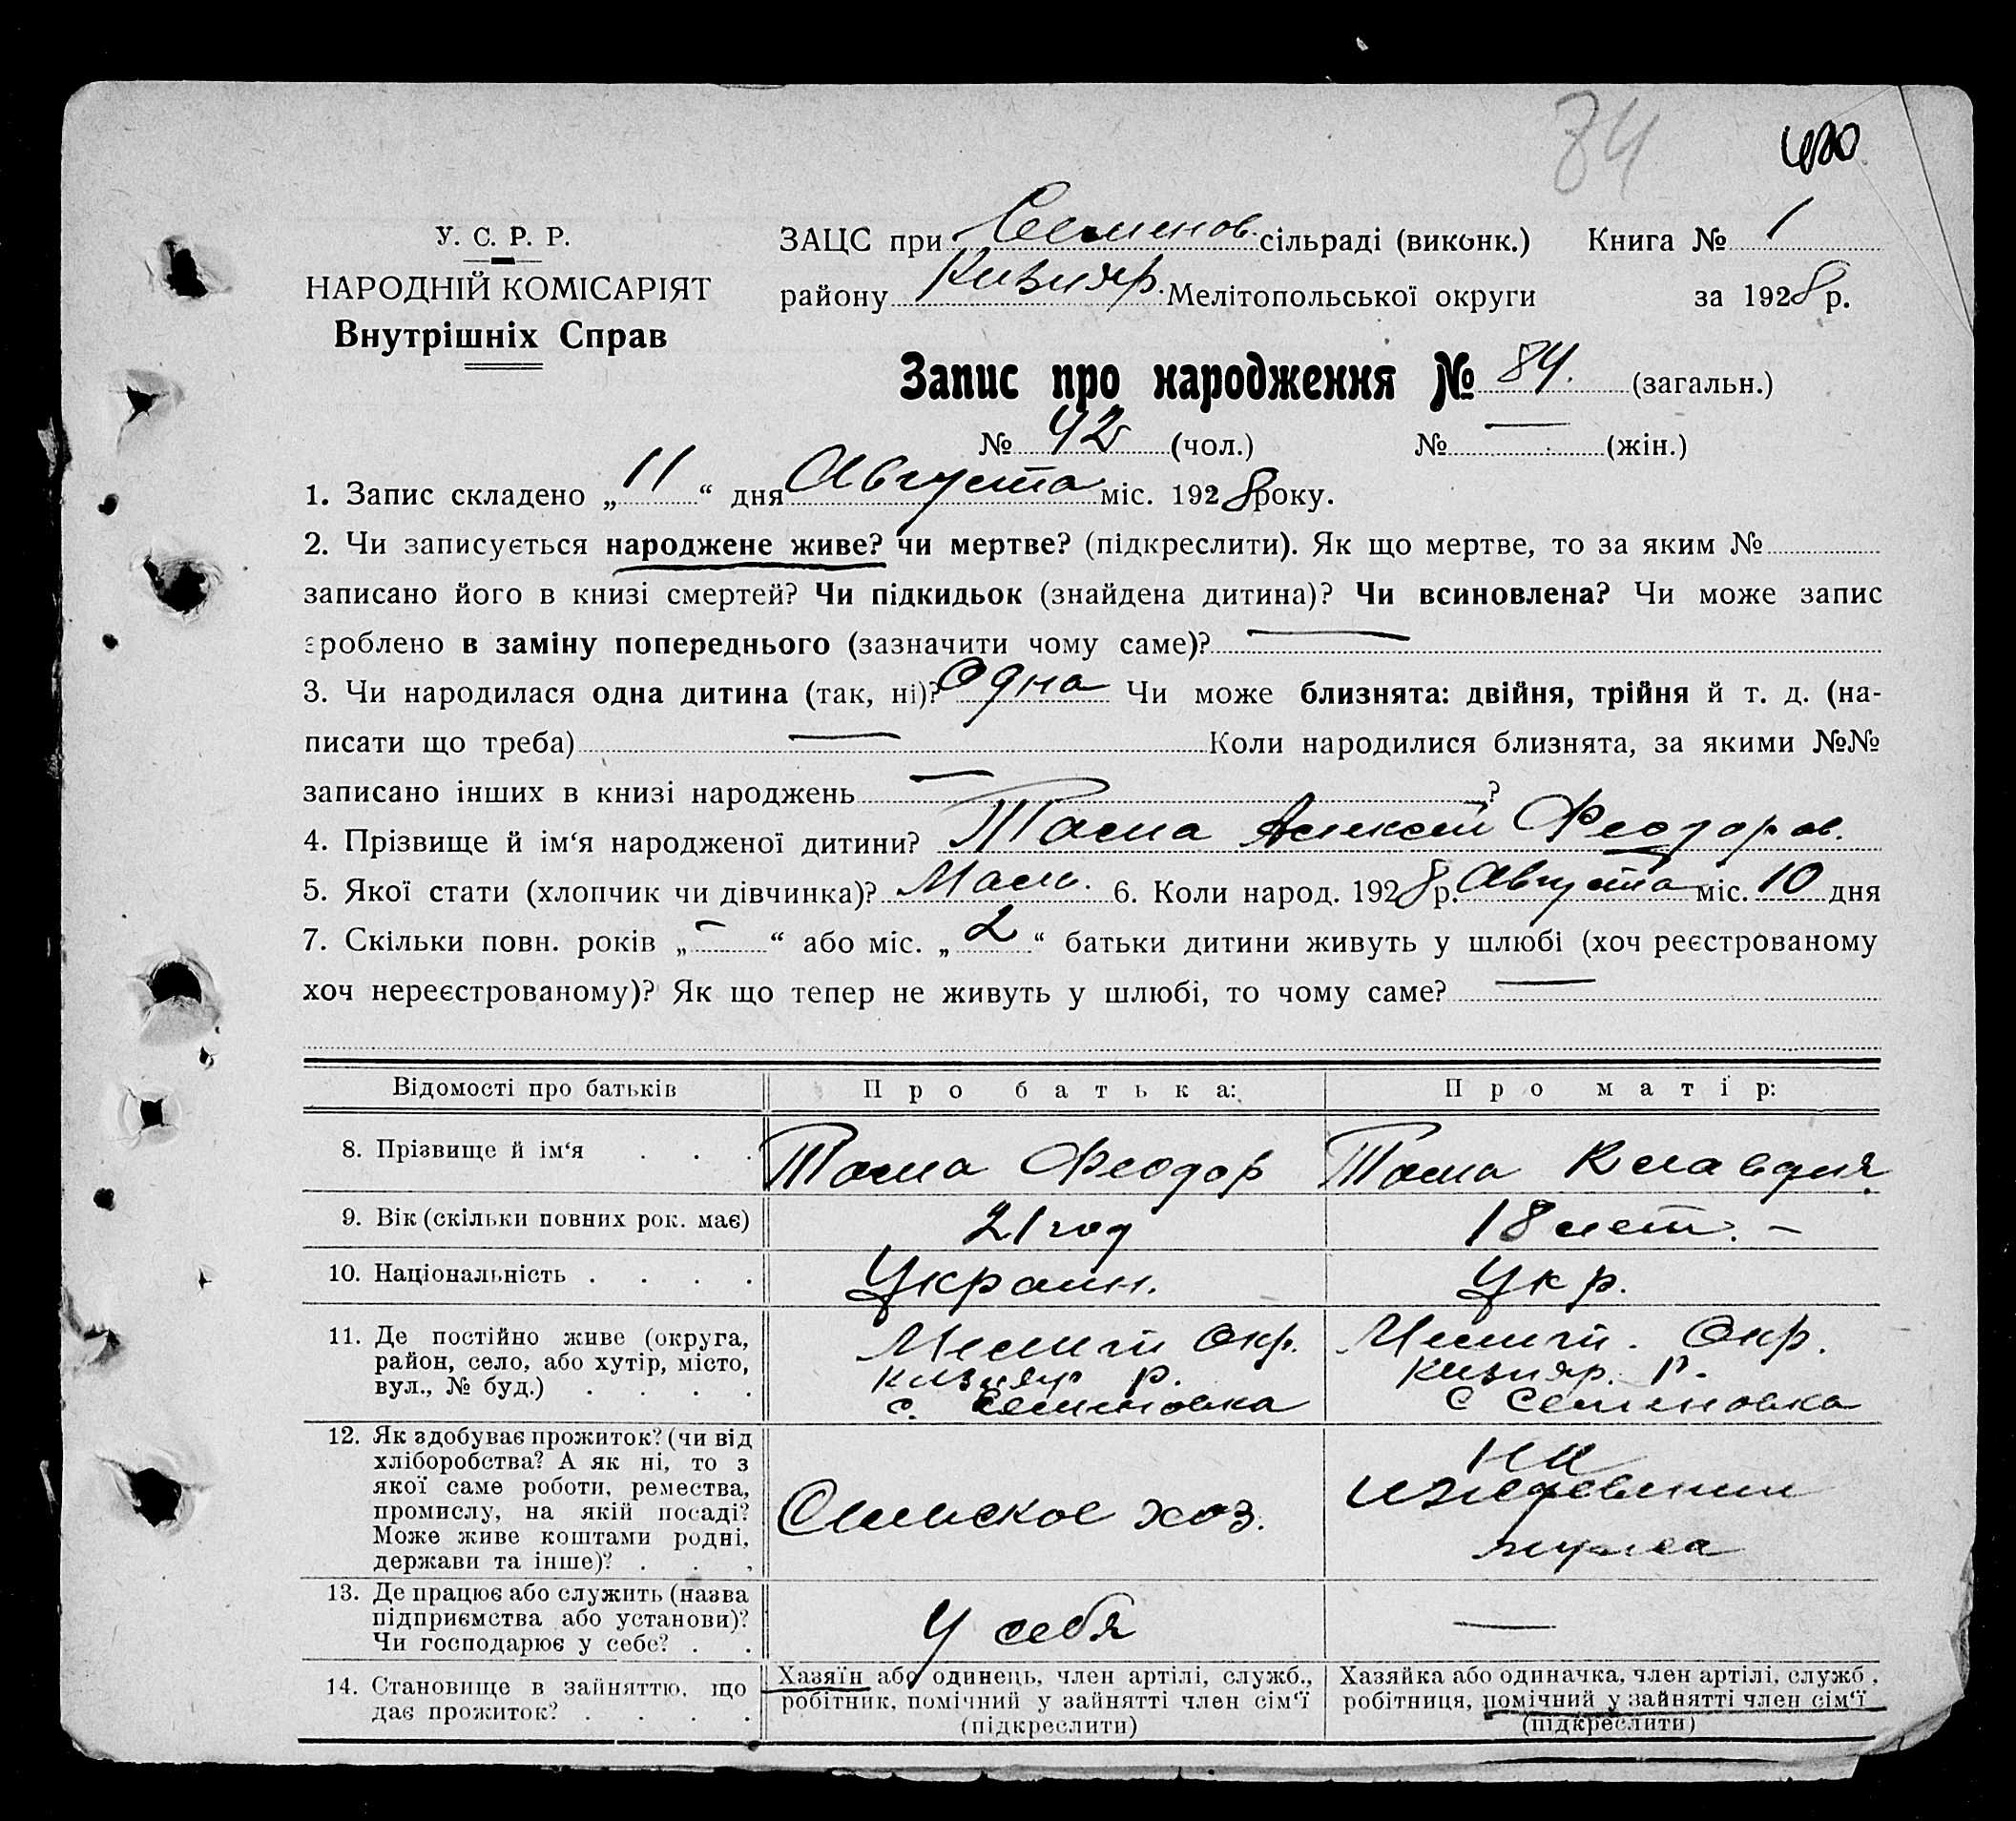 84
400
У. С. Р. Р.
НАРОДНІЙ КОМІСАРІЯТ
Внутрішніх Справ
ЗАЦС при Семенов. сільраді (виконк.) Книга № 1
району Кизияр. Мелітопольської округи за 1928 р.
Запис про народження № 84. (загальн.)
№ 42 (чол.) № — (жін.)
1. Запис складено „ 11 “ дня Августа міс. 1928 року.
2. Чи записується народжене живе? чи мертве? (підкреслити). Як що мертве, то за яким №
записано його в книзі смертей? Чи підкидьок (знайдена дитина)? Чи всиновлена? Чи може запис
зроблено в заміну попереднього (зазначити чому саме)? —
3. Чи народилася одна дитина (так, ні)? Одна Чи може близнята: двійня, трійня й т. д. (на-
писати що треба) — Коли народилися близнята, за якими №№
записано інших в книзі народжень — ?
4. Прізвище й ім‘я народженої дитини? Тома Алексей Феодоров.
5. Якої стати (хлопчик чи дівчинка)? Мальч. 6. Коли народ. 1928 р. Августа міс. 10 дня
7. Скільки повн. років „ — “ або міс. „ 2 “ батьки дитини живуть у шлюбі (хоч реєстрованому
хоч нереєстрованому)? Як що тепер не живуть у шлюбі, то чому саме? —
Відомості про батьків Про батька: Про матір:
8. Прізвище й ім‘я . . . Тома Феодор Тома Клавдия
9. Вік (скільки повних рок. має) 21 год 18 лет. –
10. Національність . . . . Украин. Укр.
11. Де постійно живе (округа,
район, село, або хутір, місто,
вул., № буд.) . . . .
Мелит Окр.
Кизияр р.
с. Семеновка
Мелит. Окр.
Кизияр. р.
с Семеновка
12. Як здобуває прожиток? (чи від
хліборобства? А як ні, то з
якої саме роботи, ремества,
промислу, на якій посаді?
Може живе коштами родні,
держави та інше)? . . .
Сельское хоз.
на
иждевении
мужа
13. Де працює або служить (назва
підприємства або установи)?
Чи господарює у себе? . .
У себя
—
14. Становище в зайняттю, що
дає прожиток? . . . .
Хазяїн або одинець, член артілі, служб.,
робітник, помічний у зайнятті член сім‘ї
(підкреслити)
Хазяйка або одиначка, член артілі, служб.,
робітниця, помічний у зайнятті член сім‘ї
(підкреслити)